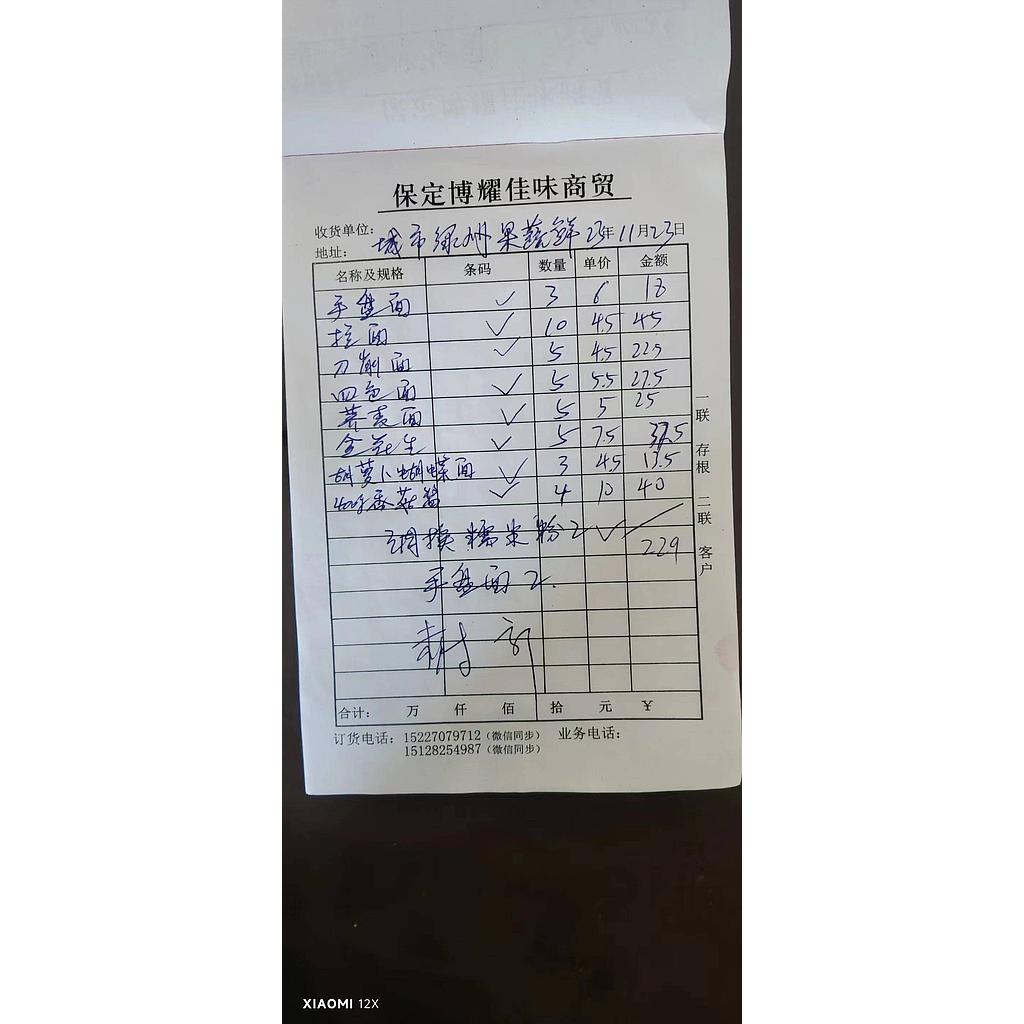 保定博耀佳味商贸
收货单位：
地址： 城市绿州果蔬鲜 23年11月23日
名称及规格 条码 数量 单价 金额
手盘面 ✓ 3 6 18
拉面 ✓ 10 4.5 45
刀削面 ✓ 5 4.5 22.5
四色面 ✓ 5 5.5 27.5
荞麦面 ✓ 5 5 25
✓ 5 7.5 37.5
胡萝卜蝴蝶面 ✓ 3 4.5 13.5
✓ 4 10 40
调换糯米粉2 ✓
229
手盘面2.
合计： 万 仟 佰 拾 元 ¥
一联 存根 二联 客户
订货电话：15227079712（微信同步） 业务电话：
15128254987（微信同步）
XIAOMI 12X